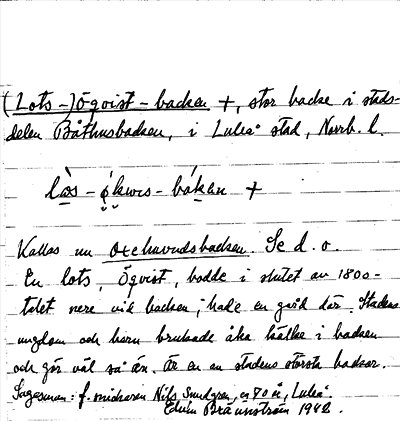 (Lots-)Öqvist-backen +, stor backe i stads-
delen Båthusbacken, i Luleå stad, Norrb. l.
Kallas nu Oxehuvudsbacken. Se d. o.
En lots, Öqvist, bodde i slutet av 1800-
talet nere vid backen, hade en gård där. Stadens
ungdom och barn brukade åka kälke i backen
och gör väl så än. Är en av stadens största backar.
Sagesman: f. Nils Sundgren, 70 år, Luleå.
Edvin Brännström 1942.